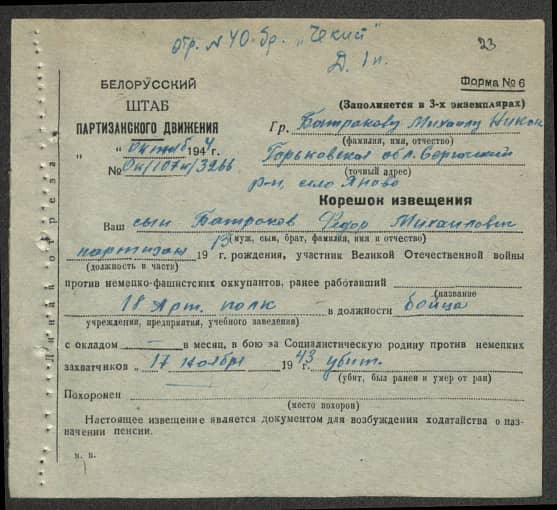 отр. №40. бр. „Чекист"
23
Д. 1 п.
БЕЛОРУССКИЙ
ШТАБ
ПАРТИЗАНСКОГО ДВИЖЕНИЯ
„ " октяб 1944 г.
№
Форма № 6
(Заполняется в 3-х экземплярах)
Гр. Батракову Михаилу Никол
(фамилия, имя, отчество)
Горьковская обл. Сергачский
(точный адрес)
р-н, село Яново
Корешок извещения
Ваш сын Батраков Федор Михайлович
(муж, сын, брат, фамилия, имя и отчество)
партизан 1913 г. рождения, участник Великой Отечественной войны
(должность в части)
против немецко-фашистских оккупантов, ранее работавший
(название
18 Арт. полк в должности бойца
учреждения, предприятия, учебного заведения)
с окладом — в месяц, в бою за Социалистическую родину против немецких
захватчиков „ 17 ноября 1943 г. убит.
(убит, был ранен и умер от ран)
Похоронен
(место похорон)
Настоящее извещение является документом для возбуждения ходатайства о наз-
начении пенсии.
м. п.
Линия отреза